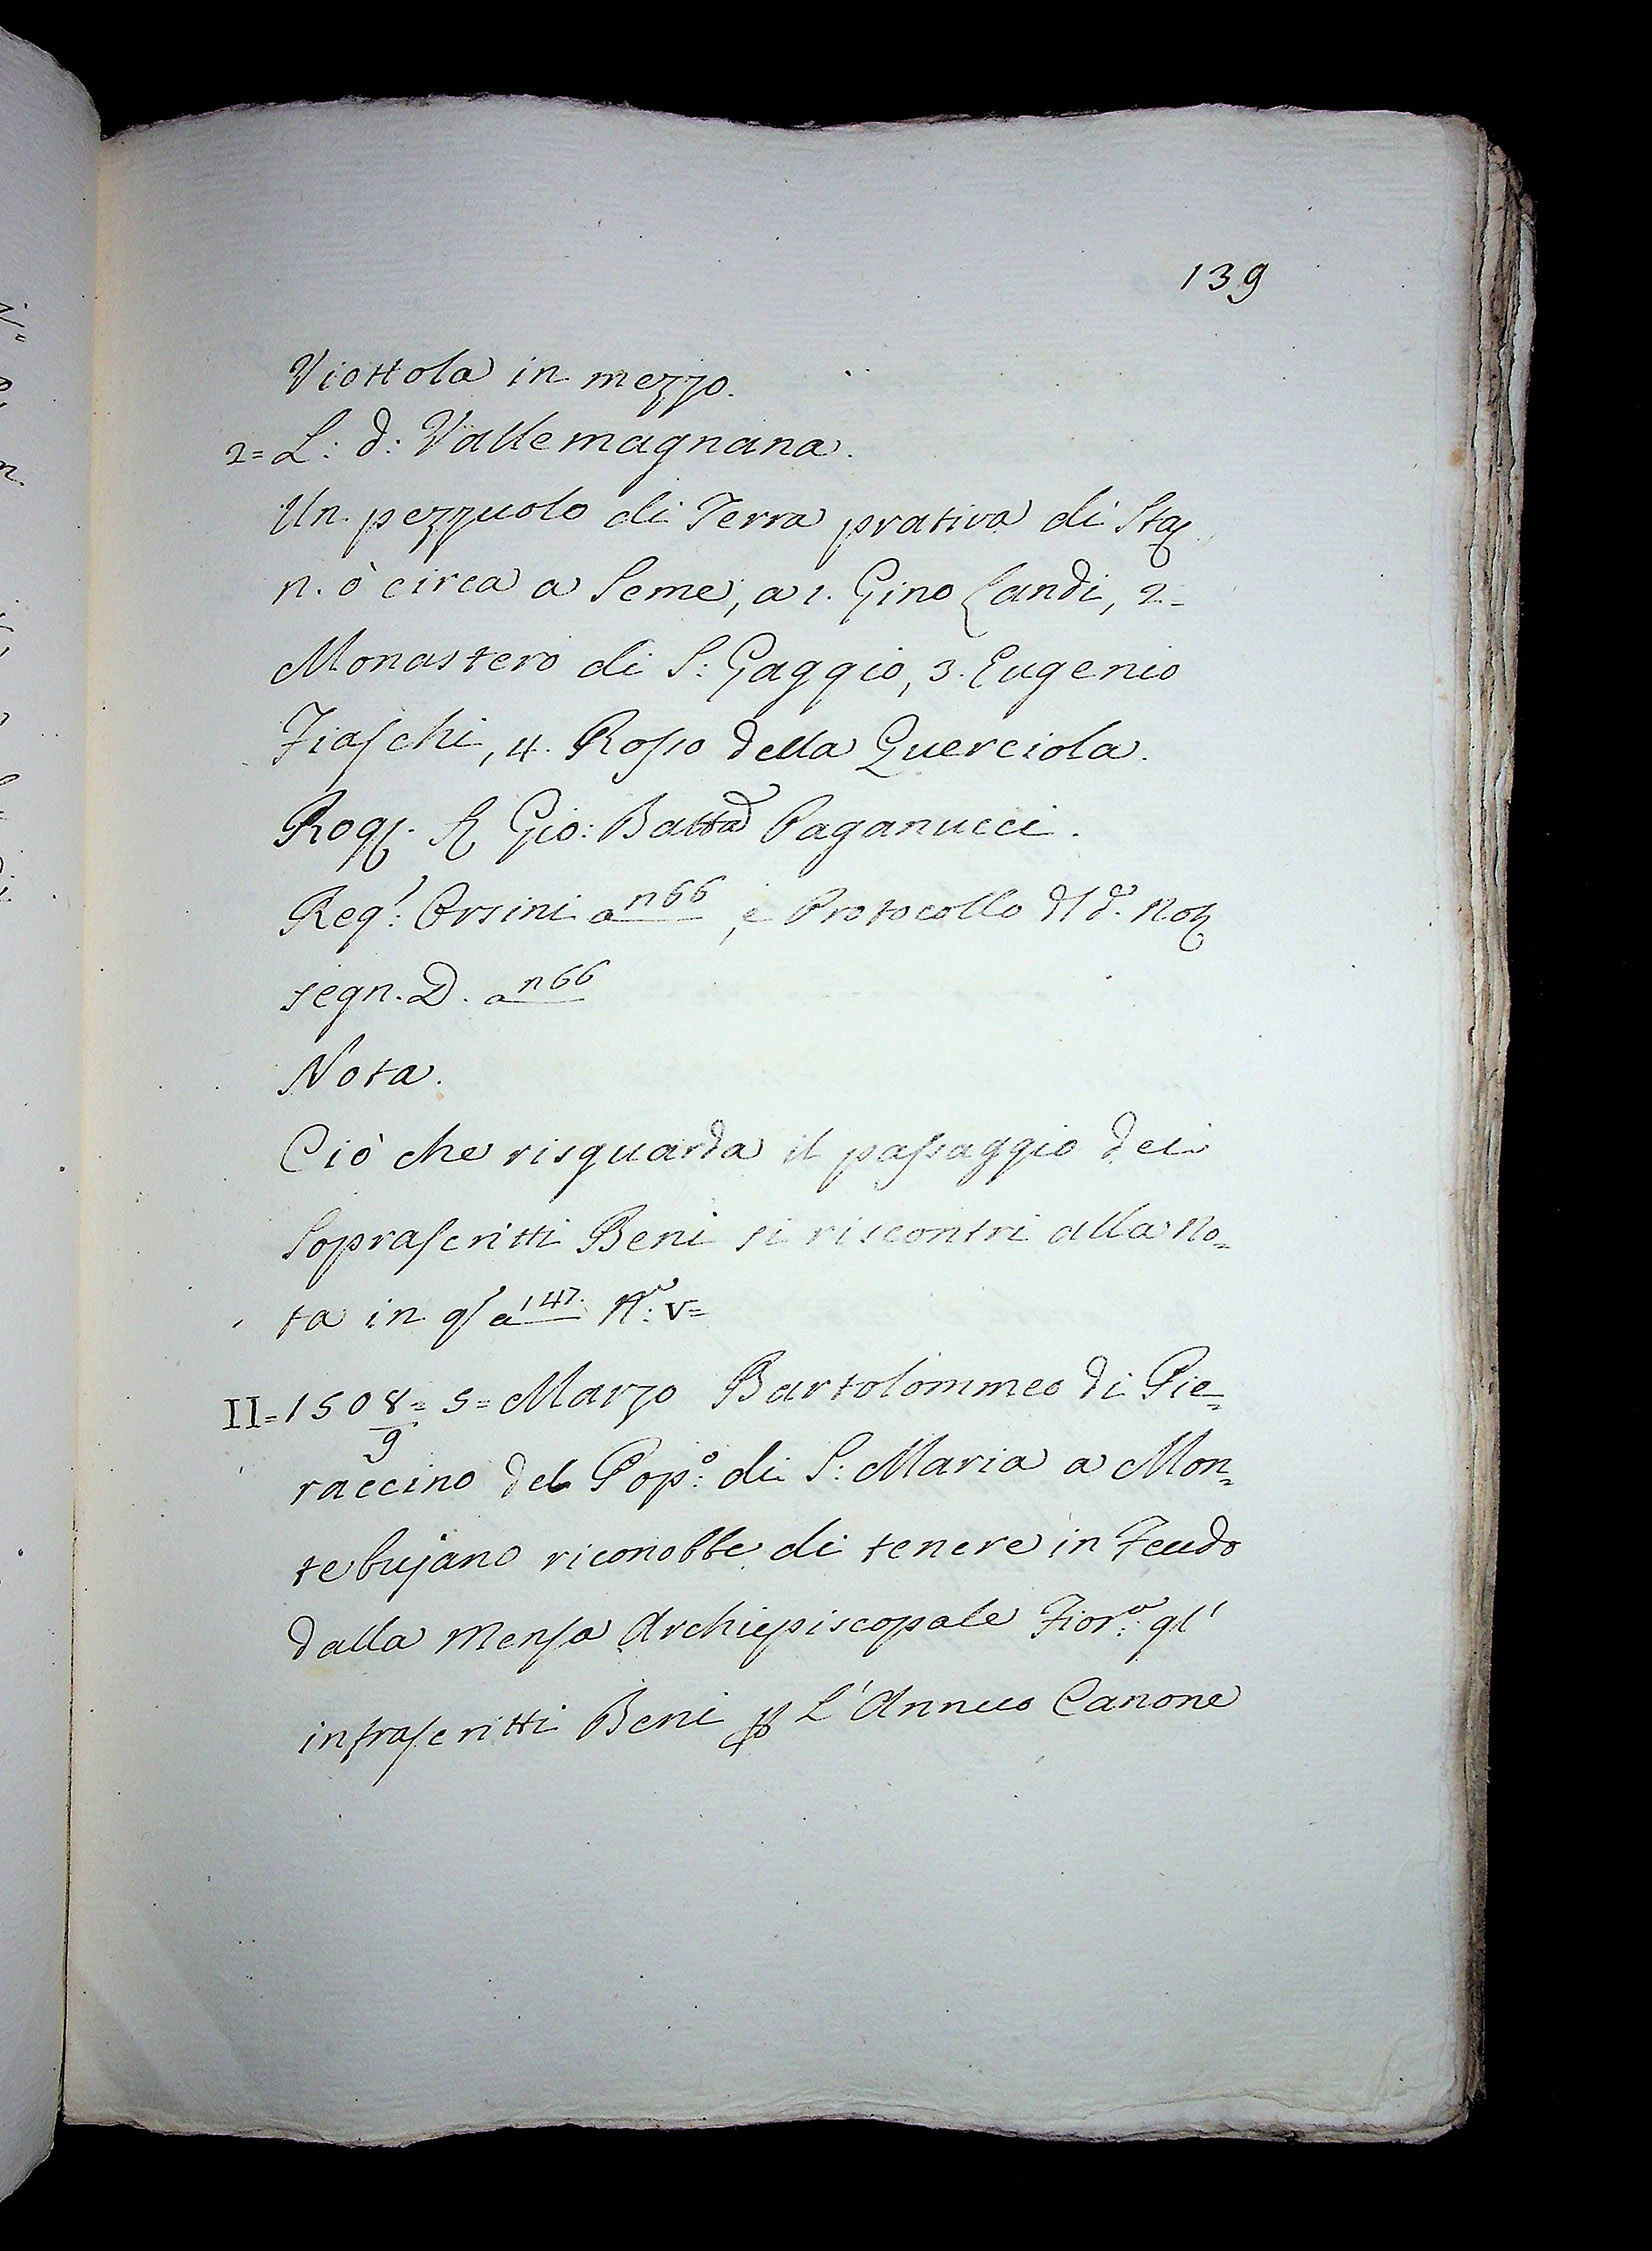 139
Viottola in mezzo.
2= L: d: Vallemagnana.
Un pezzuolo di Terra prativa di Sta
n. ò circa a Seme, a 1. Gino Landi, 2=
Monastero di S: Gaggio, 3. Eugenio
Fiaschi, 4. Rosso della Querciola.
Rog. Gio: Batta Paganucci.
Reg: Orsini a n66, e Protocollo dl d.º Not
segn. D. a n66
Nota.
Ciò che risguarda il passaggio dei
Soprascritti Beni si riscontri alla no=
ta in q a 147. N.º: V=
II= 1508/9= 5= Marzo Bartolommeo di Pie=
raccino del Pop.º: di S: Maria a Mon=
tebujano riconobbe di tenere in Feudo
dalla Mensa Archiepiscopale Fior.ª: gl'
infrascritti Beni p L'Annuo Canone